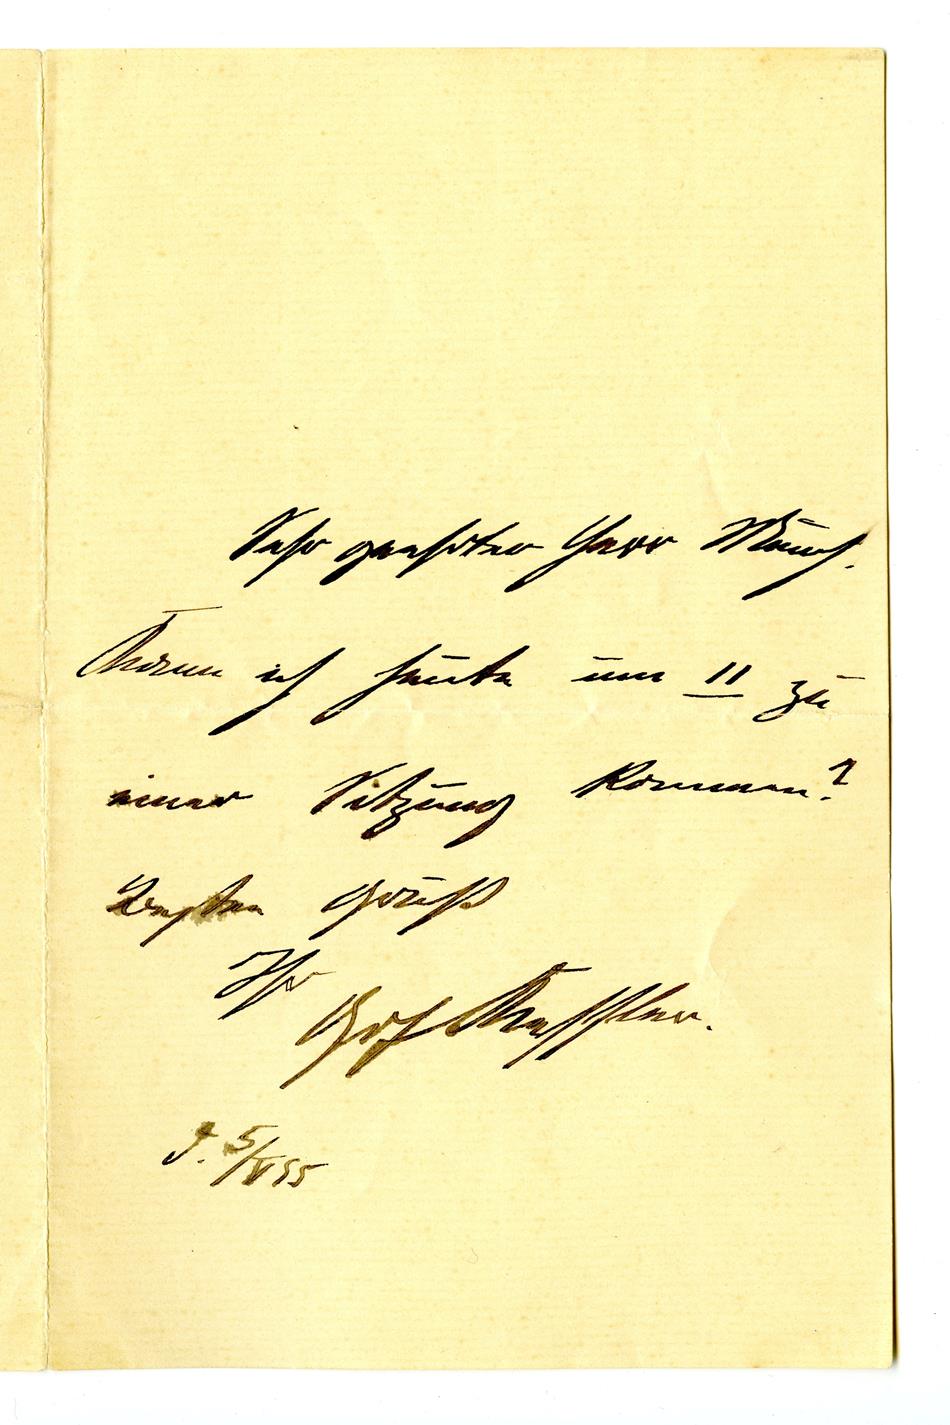 Sehr geehrter Herr Munch.
Kann ich heute um 11 zu
einer Sitzung kommen?
Besten Gruß
Ihr
Grf Kessler.
5/V 95